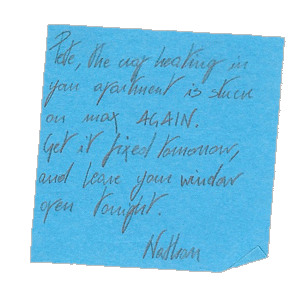 Pete, the heating in
your apartment is stuck
on max AGAIN.
Get it fixed tomorrow,
and leave your window
open tonight.
Nathan